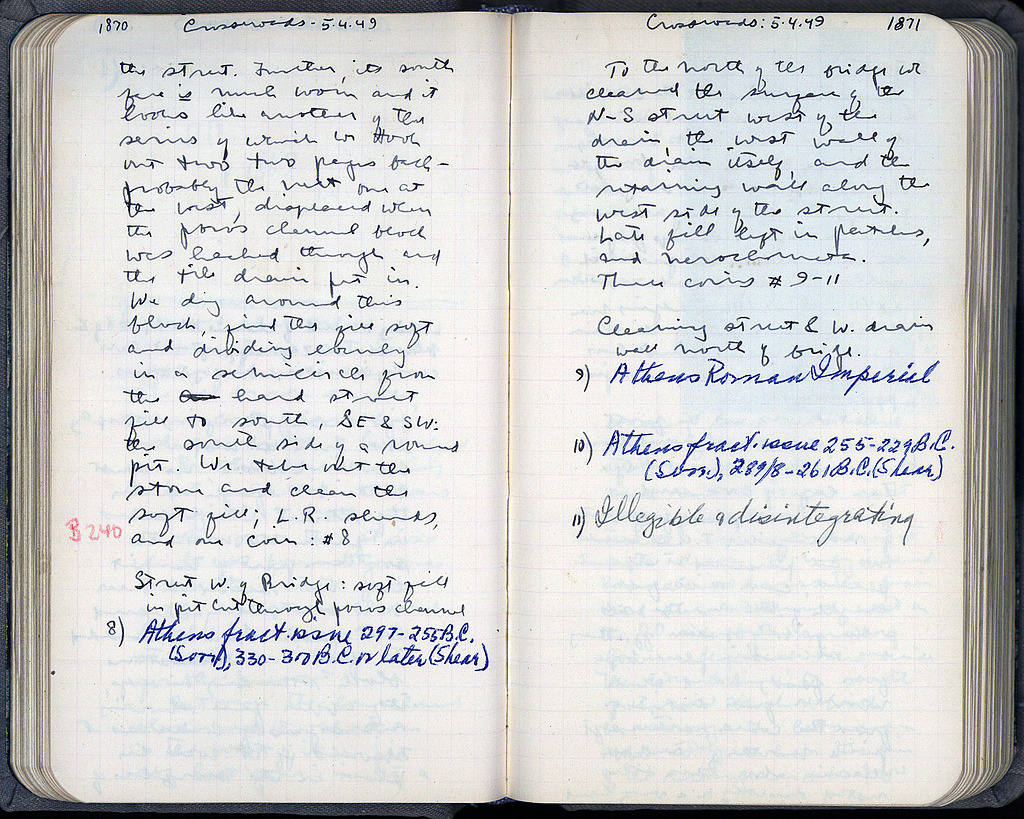 1870 Crossroads - 5.4.49
the street. Further, its south
face is much worn and it
looks like another of the
series of which we took
out two two pages back -
probably the next one at
the west, displaced when
the poros channel block
was hacked through and
the tile drain put in.
We dig around this
block, find the fill soft
and dividing cleanly
in a semicircle from
the hard street
fill to south, SE & SW:
the south side of a round
pit. We take out the
stone and clean the
soft fill; L.R. sherds,
B 240
and one coin: #8
Street W. of Bridge: soft fill
in pit cut through poros channel
8) Athens fract. issue 297-255 B.C.
(Svor.), 330-300 B.C. or later (Shear)
Crossroads: 5.4.49 1871
To the north of the bridge we
cleaned the surface of the
N-S street west of the
drain, the west wall of
the drain itself, and the
retaining wall along the
west side of the street.
Late fill left in patches,
and
Three coins #9-11
Cleaning street & W. drain
wall north of bridge.
9) Athens Roman Imperial
10) Athens fract. issue 255-229 B.C.
(Svor.), 289/8-261 B.C. (Shear)
11) Illegible & disintegrating